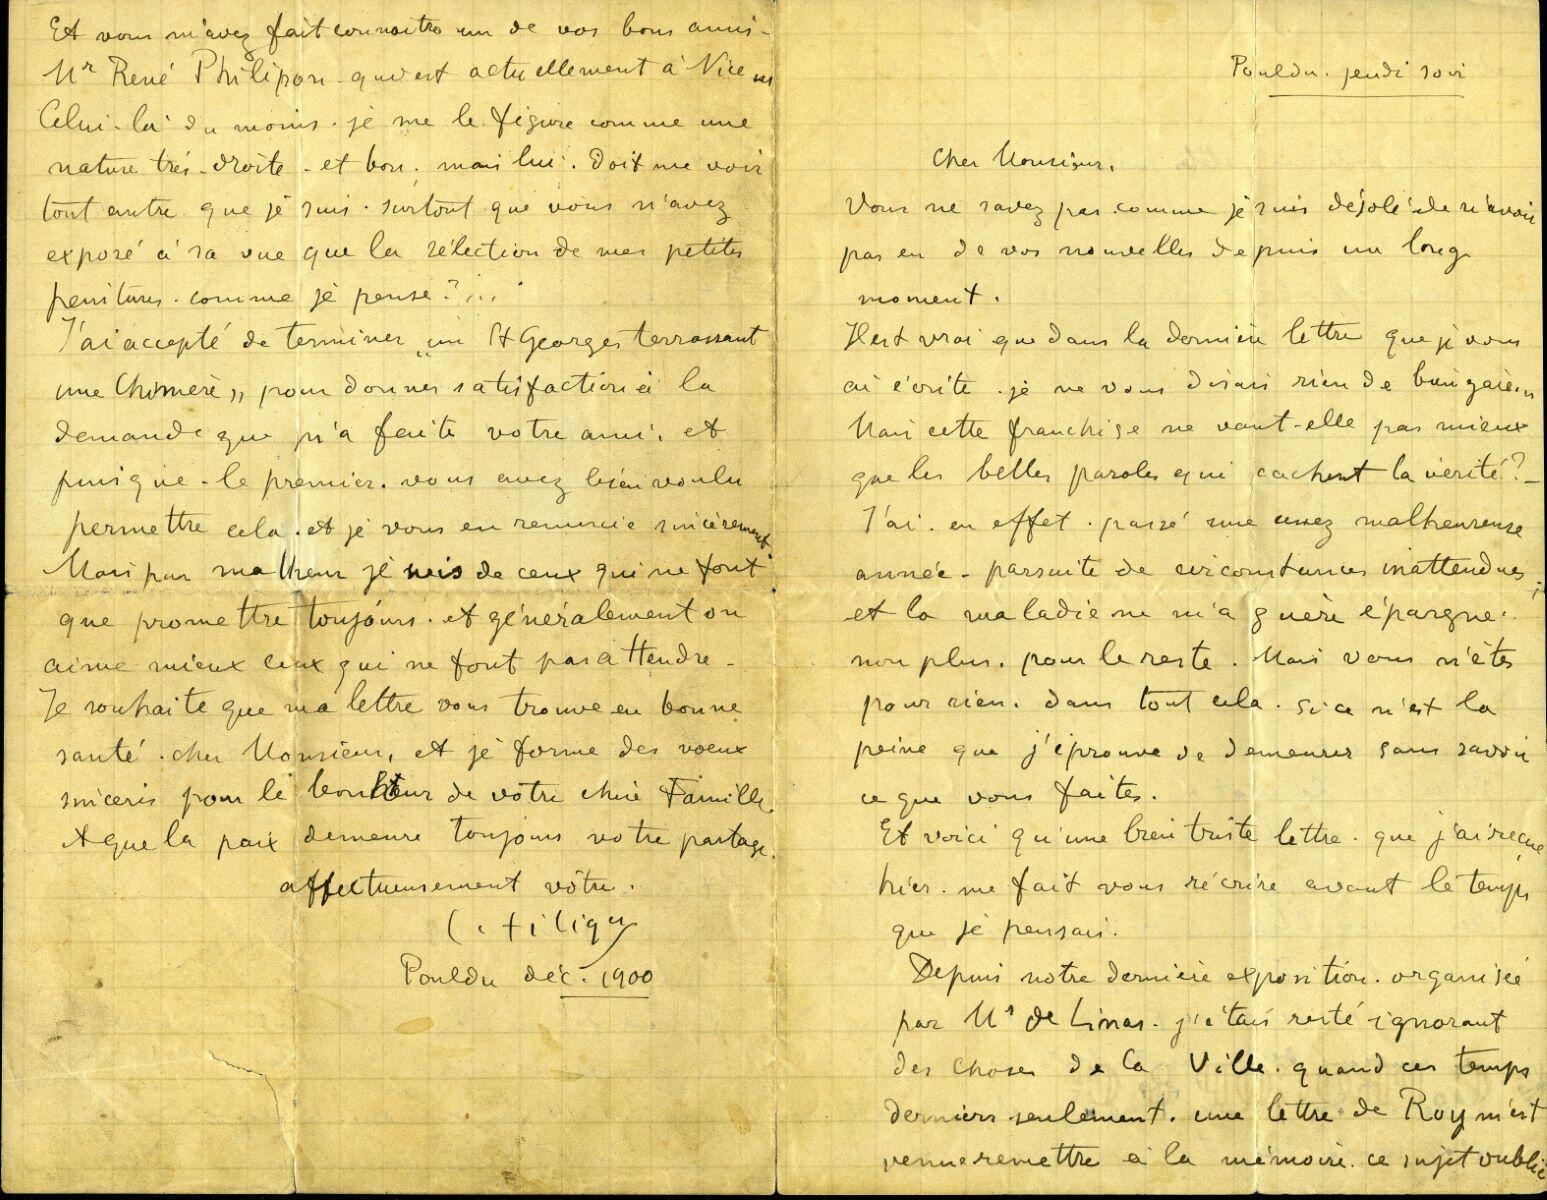 Pouldu. jeudi soir
Cher Monsieur,
Vous ne savez pas comme je suis désolé de n'avoir
pas eu de vos nouvelles depuis un long
moment.
Il est vrai que dans la dernière lettre que je vous
ai écrite. je ne vous disais rien de bien gai
Mais cette franchise ne vaut-elle pas mieux
que les belles paroles qui cachent la vérité?-
J'ai. en effet. passé une assez malheureuse
année - par suite de circonstances inattendues;
et la maladie ne m'a guère épargné.
non plus. pour le reste. Mais vous n'êtes
pour rien. dans tout cela. si ce n'est la
peine que j'éprouve de demeurer sans savoir
ce que vous faites.
Et voici qu'une bien triste lettre. que j'ai reçue
hier. me fait vous récrire avant le temps
que je pensais.
Depuis notre dernière exposition. organisée
par Mr de Linas. j'étais resté ignorant
des choses de la Ville. quand ces temps
derniers seulement. une lettre de Roy m'est
venue remettre à la mémoire. ce sujet oublié
Et vous m'avez fait connaître un de vos bons amis-
Mr René Philipon. qui est actuellement à Nice
Celui-là du moins. je me le figure comme une
nature très-droite - et bon. mais lui. doit me voir
tout autre que je suis. surtout que vous n'avez
exposé à sa vue que la sélection de mes petites
peintures. comme je pense?...
J'ai accepté de terminer „un St Georges terrassant
une Chimère„ pour donner satisfaction à la
demande que m'a faite votre ami. et
puisque - le premier. vous avez bien voulu
permettre cela. et je vous en remercie sincèrement
Mais par malheur je suis de ceux qui ne font
que promettre toujours. et généralement on
aime mieux ceux qui ne font pas attendre-
Je souhaite que ma lettre vous trouve en bonne
santé. cher Monsieur, et je forme des voeux
sincères pour le bonheur de votre chère Famille
et que la paix demeure toujours votre partage.
affectueusement vôtre.
C. Filiger
Pouldu déc. 1900